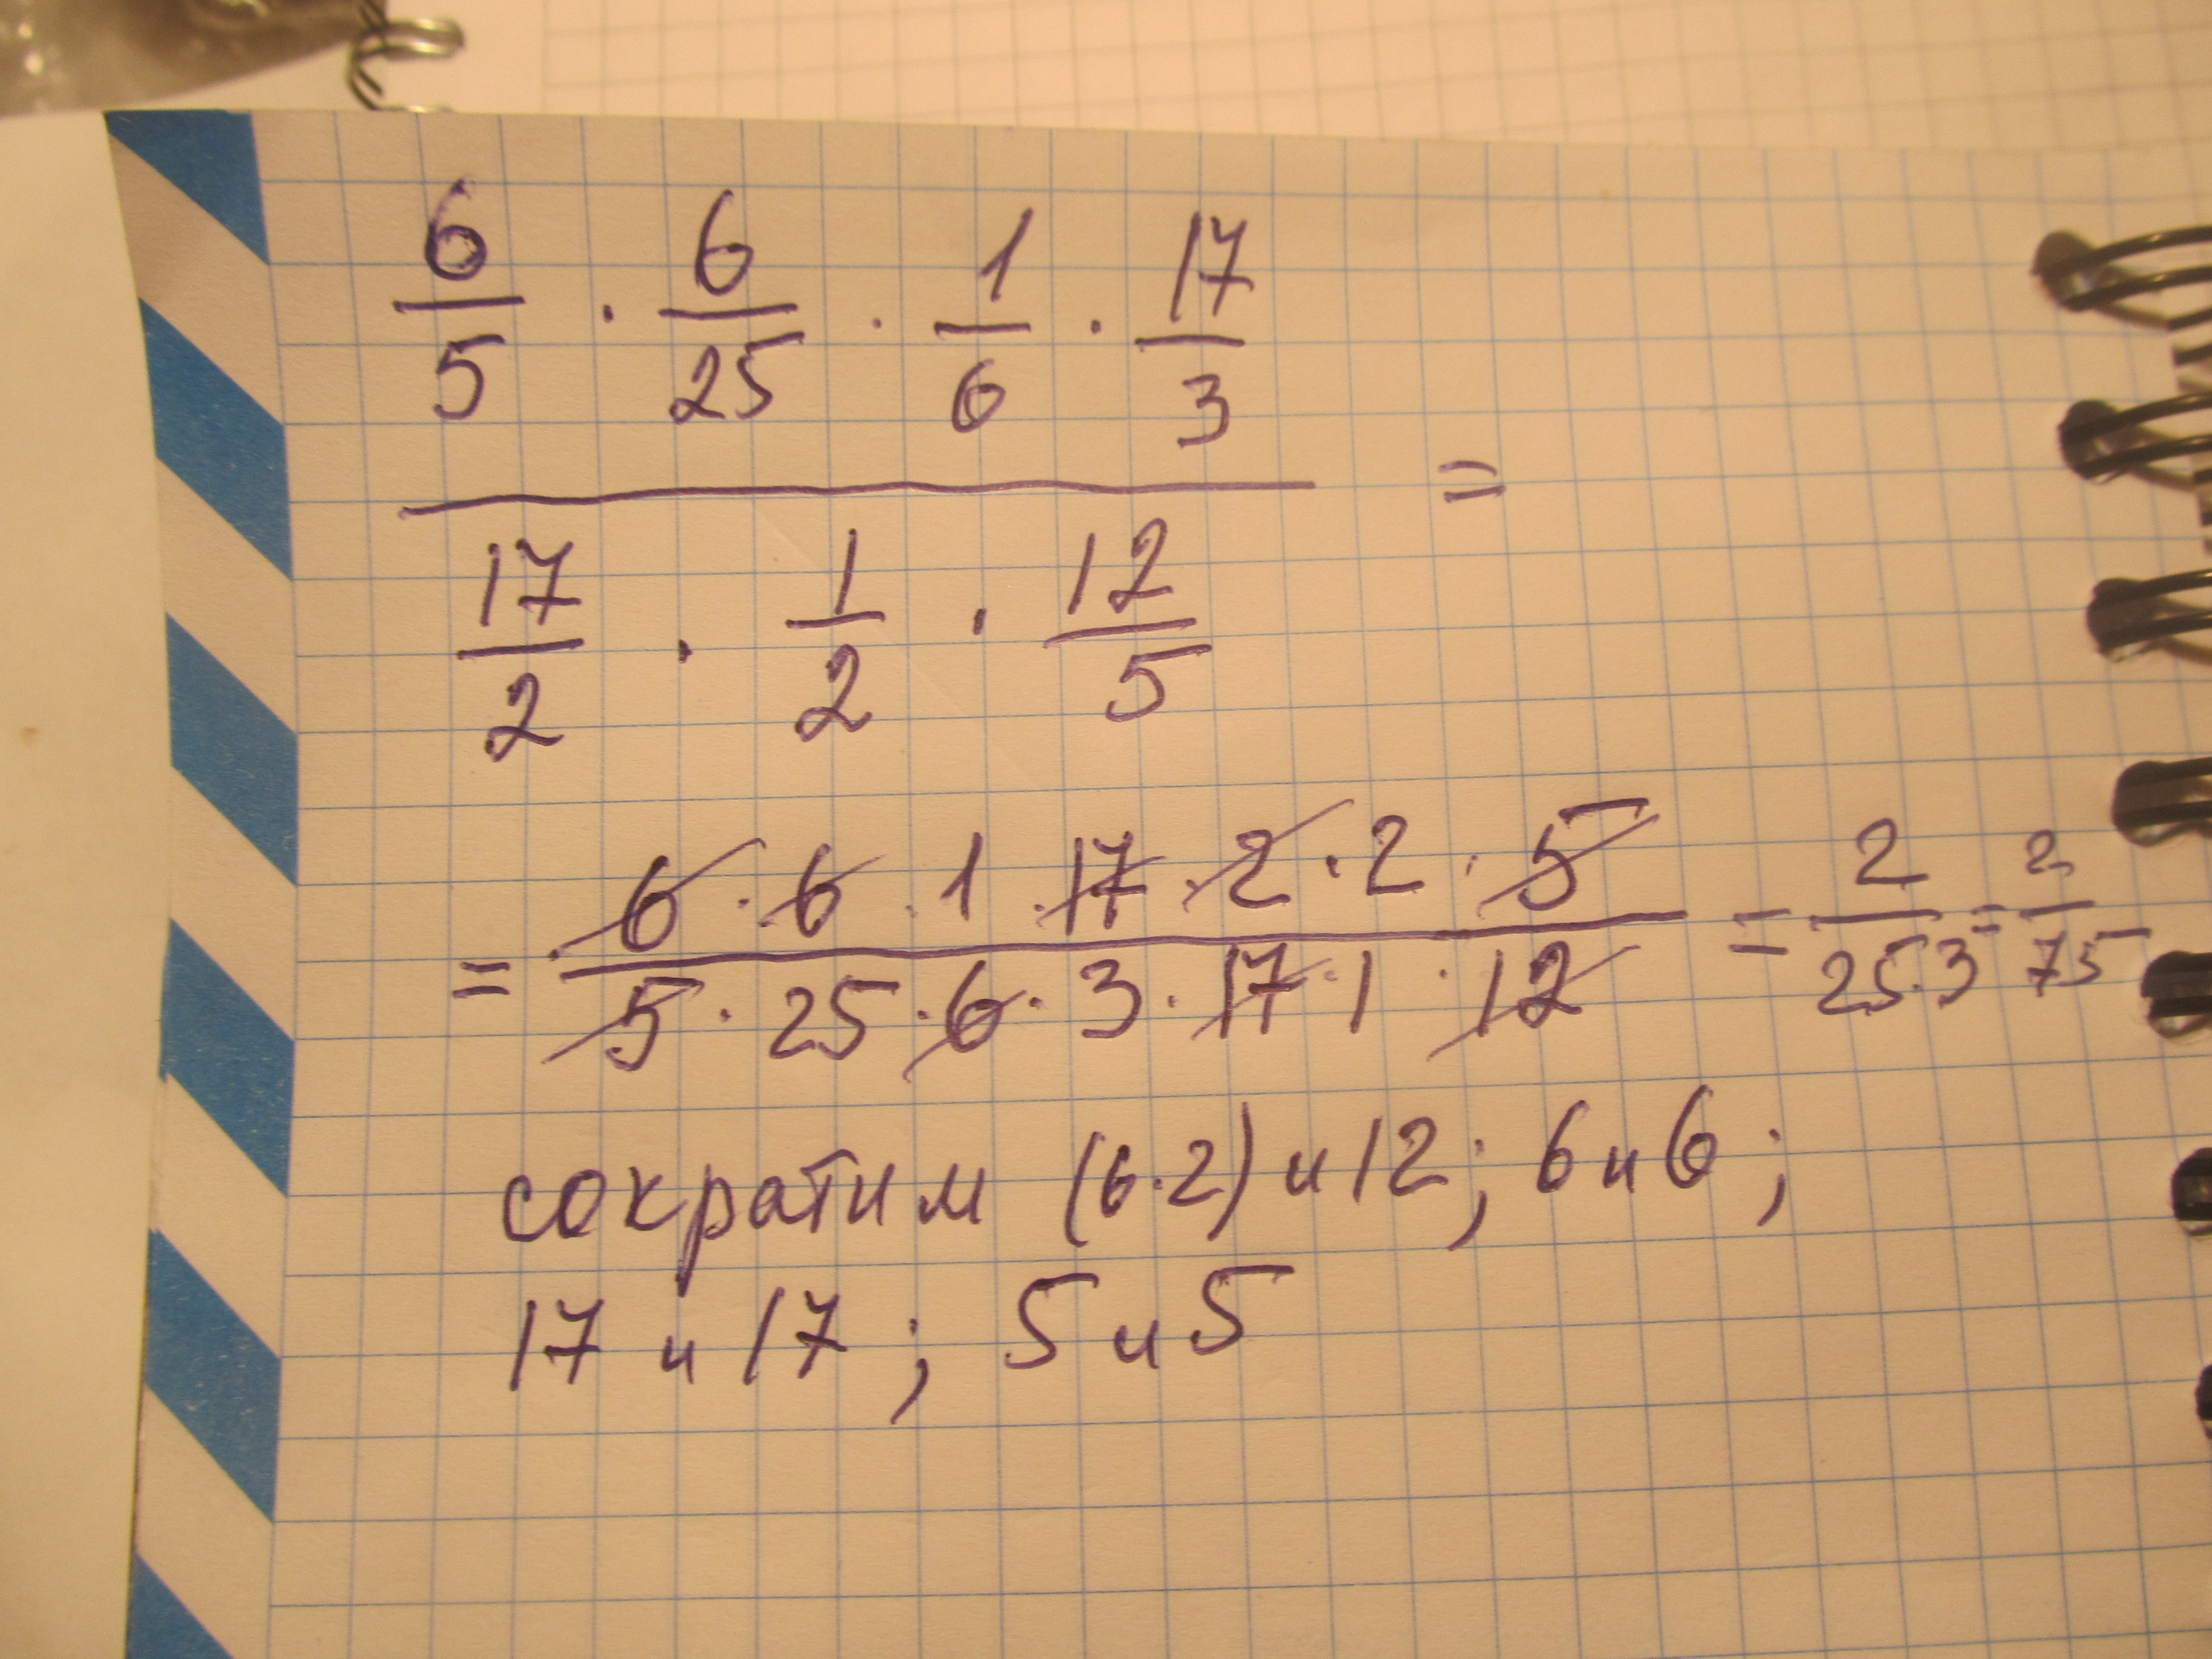 6/5 · 6/25 · 1/6 · 17/3
=
17/2 · 1/2 · 12/5
= 6 · 6 · 1 · 17 · 2 · 2 · 5 / 5 · 25 · 6 · 3 · 17 · 1 · 12 = 2 / 25·3 = 2/75
сократим (6·2) и 12; 6 и 6;
17 и 17; 5 и 5